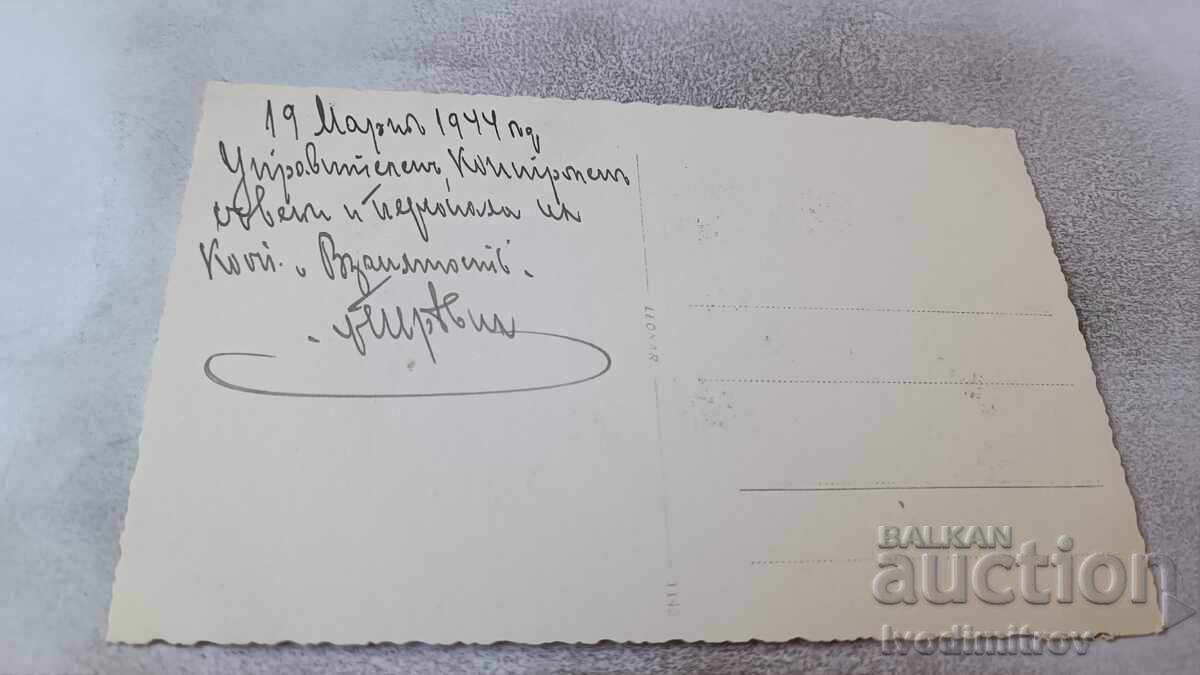 19 Мартъ 1944 год
Управителенъ, Контроленъ
съветъ и персонала на
Кооп. „Взаимность".
LEONAR
BALKAN
auction
Ivodimitrov